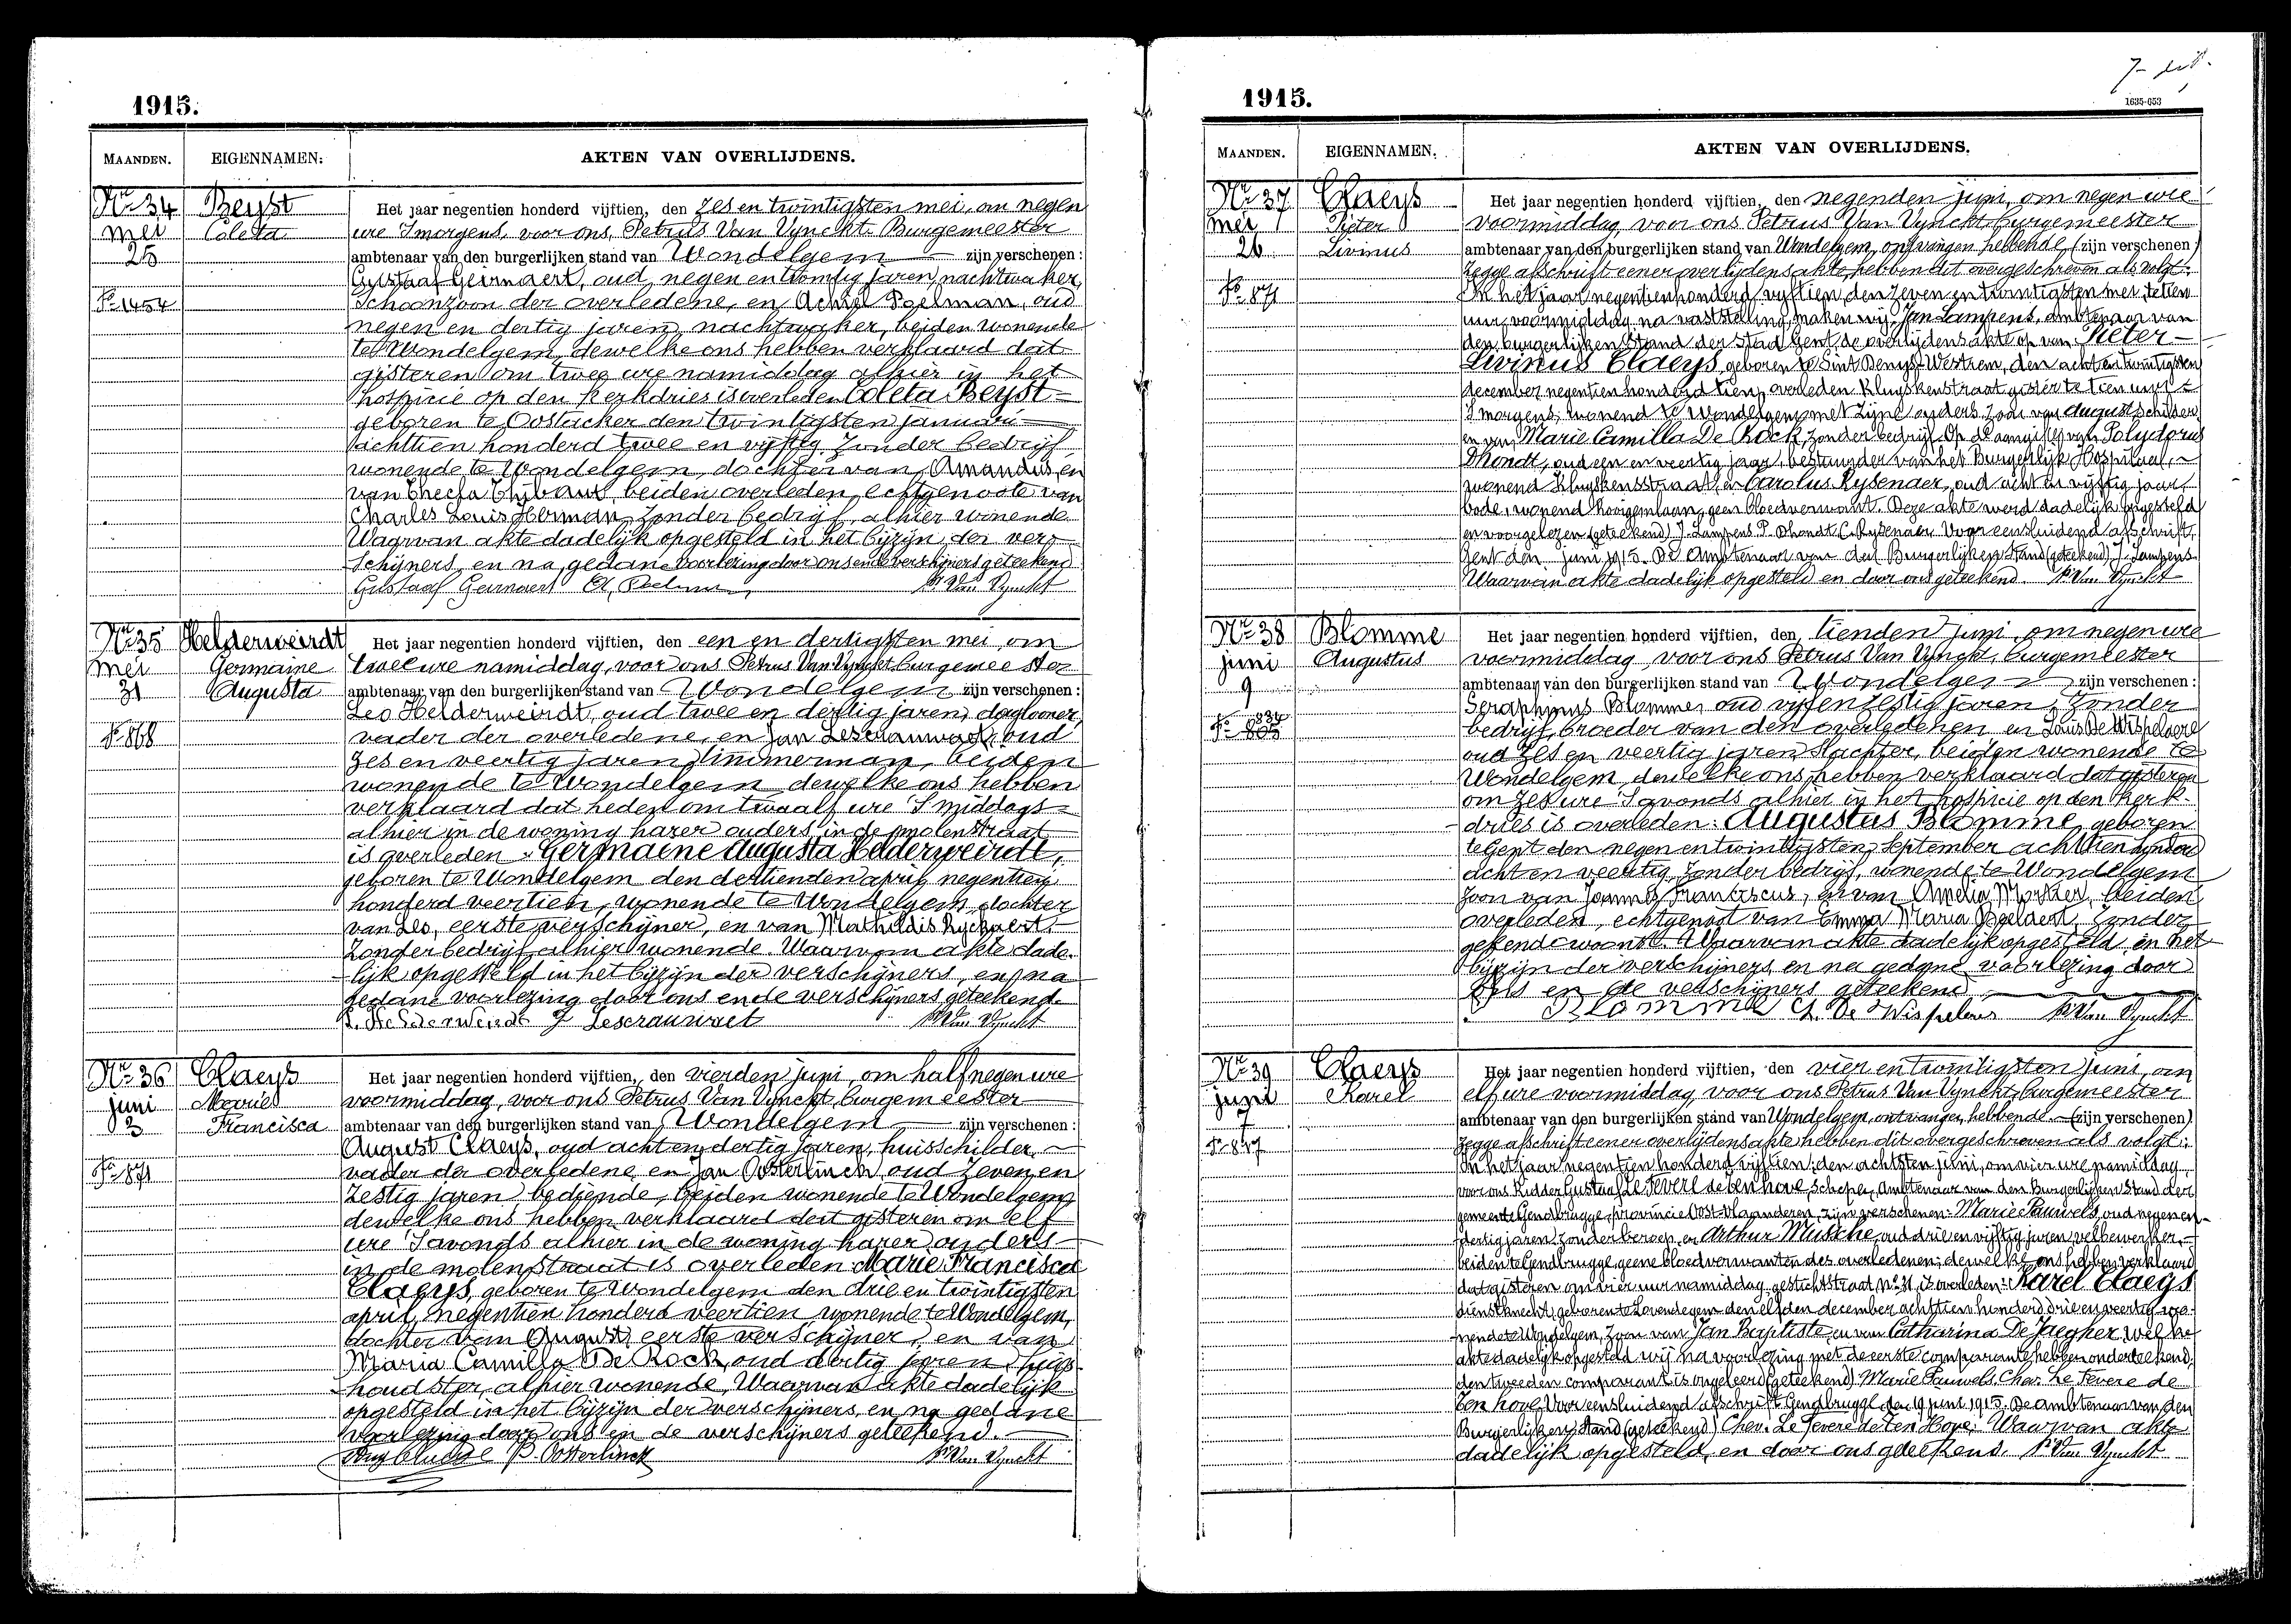 1915.
MAANDEN. EIGENNAMEN: AKTEN VAN OVERLIJDENS.
Nr 34 Beyst
mei Coleta
25
Fo 1454
Het jaar negentien honderd vijftien, den zes en twintigsten mei, om negen
ure 's morgens, voor ons, Petrus Van Vynckt Burgemeester
ambtenaar van den burgerlijken stand van Wondelgem zijn verschenen:
Gustaaf Geirnaert, oud negen en twintig jaren, nachtwaker,
Schoonzoon der overledene, en Achiel Poelman, oud
negen en dertig jaren, nachtwaker, beiden wonende
te Wondelgem, dewelke ons hebben verklaard dat
gisteren om twee ure namiddag alhier in het
hospicie op den Kerkdries is overleden Coleta Beyst
geboren te Oostacker den twintigsten januari
achttien honderd twee en vijftig zonder bedrijf
wonende te Wondelgem, dochter van Amandus en
van Thecla Thibaut, beiden overleden, echtgenoote van
Charles Louis Herman, zonder bedrijf, alhier wonende.
Waarvan akte dadelijk opgesteld in het bijzijn der ver=
schijners, en na gedane voorlezing door ons en de verschijners geteekend
Gustaaf Geirnaert A. Poelman P. Van Vynckt
Nr 35 Helderweirdt
mei Germaine
31 Augusta
Fo 868
Het jaar negentien honderd vijftien, den een en dertigsten mei, om
twee ure namiddag, voor ons Petrus Van Vynckt, burgemeester
ambtenaar van den burgerlijken stand van Wondelgem zijn verschenen:
Leo Helderweirdt, oud twee en dertig jaren, daglooner,
vader der overledene, en Jan Lescrauwaet, oud
zes en veertig jaren, timmerman, beiden
wonende te Wondelgem dewelke ons hebben
verklaard dat heden om twaalf ure 's middags
alhier in de woning harer ouders, in de molenstraat
is overleden: Germaine Augusta Helderweirdt,
geboren te Wondelgem den dertienden april negentien
honderd veertien, wonende te Wondelgem, dochter
van Leo, eerste verschijner, en van Mathildis Ryckaert,
zonder bedrijf alhier wonende. Waarvan akte dade-
lijk opgesteld in het bijzijn der verschijners, en na
gedane voorlezing door ons en de verschijners geteekend.
L. Helderweirdt J Lescrauwaet P. Van Vynckt
Nr 36 Claeys
juni Marie
3 Francisca
Fo 871
Het jaar negentien honderd vijftien, den vierden juni, om half negen ure
voormiddag, voor ons Petrus Van Vynckt, burgemeester
ambtenaar van den burgerlijken stand van Wondelgem zijn verschenen:
August Claeys, oud acht en dertig jaren, huisschilder,
vader der overledene, en Jan Oosterlinck, oud zeven en
zestig jaren, bediende, beiden wonende te Wondelgem
dewelke ons hebben verklaard dat gisteren om elf
ure 's avonds alhier in de woning harer ouders
in de molenstraat is overleden Marie Francisca
Claeys, geboren te Wondelgem den drie en twintigsten
april negentien honderd veertien wonende te Wondelgem,
dochter van August, eerste verschijner, en van
Maria Camilla De Rock, oud dertig jaren, huis-
houdster, alhier wonende, Waarvan akte dadelijk
opgesteld in het bijzijn der verschijners, en na gedane
voorlezing door ons en de verschijners geteekend.
Aug Claeys P. Oosterlinck P. Van Vynckt
1915.
1635-653
MAANDEN. EIGENNAMEN. AKTEN VAN OVERLIJDENS.
Nr 37 Claeys
mei Pieter
26 Livinus
Fo 871
Het jaar negentien honderd vijftien, den negenden juni, om negen ure
voormiddag voor ons Petrus Van Vynckt, burgemeester
ambtenaar van den burgerlijken stand van Wondelgem, ontvangen hebbende (zijn verschenen)
zegge afschrift eener overlijdensakte, hebben dit overgeschreven als volgt:
In het jaar negentienhonderd vijftien, den zeven en twintigsten mei, te tien
uur voormiddag, na vaststelling, maken wij, Jan Lampens, ambtenaar van
den burgerlijken Stand der Stad Gent, de overlijdensakte op van Pieter
Livinus Claeys, geboren te Sint Denys-Westrem, den acht en twintigsten
december negentien honderd tien, overleden Kluyskenstraat gister te tien uur
's morgens, wonend te Wondelgem met zijne ouders, zoon van August, schilder,
en van Marie Camilla De Rock, zonder bedrijf. Op de aangifte van Polydorus
Dhondt, oud een en veertig jaar, bestuurder van het Burgerlijk Hospitaal,
wonend Kluyskensstraat, en Carolus Rysenaer, oud acht en vijftig jaar,
bode, wonend Kooigemlaan, geen bloedverwant. Deze akte werd dadelijk opgesteld
en voorgelezen (geteekend) J. Lampens P. Dhondt C. Rysenaer Voor eensluidend afschrift,
Gent den juni 1915. De Ambtenaar van den Burgerlijken Stand (geteekend) J. Lampens
Waarvan akte dadelijk opgesteld en door ons geteekend. P. Van Vynckt
Nr 38 Blomme
juni Augustus
9
Het jaar negentien honderd vijftien, den tienden juni, om negen ure
voormiddag voor ons Petrus Van Vynckt, burgemeester
ambtenaar van den burgerlijken stand van Wondelgem zijn verschenen:
Seraphinus Blomme, oud vijf en zestig jaren, zonder
bedrijf, broeder van den overledenen, en Louis De Wispelaere
oud zes en veertig jaren, slachter, beiden wonende te
Wondelgem, dewelke ons hebben verklaard dat gisteren
om zes ure 's avonds alhier in het hospicie op den Kerk-
dries is overleden: Augustus Blomme, geboren
te Gent den negen en twintigsten September achttien honderd
acht en veertig, zonder bedrijf, wonende te Wondelgem
zoon van Joannes Franciscus, en van Amelia, beiden
overleden, echtgenoot van Emma Maria Beelaert, zonder
gekende woonst. Waarvan akte dadelijk opgesteld in het
bijzijn der verschijners, en na gedane voorlezing door
Ons en de verschijners geteekend
Blomme De Wispelaere P. Van Vynckt
Nr 39 Claeys
juni Karel
7
Fo 847
Het jaar negentien honderd vijftien, den vier en twintigsten juni, om
elf ure voormiddag voor ons Petrus Van Vynckt, burgemeester
ambtenaar van den burgerlijken stand van Wondelgem, ontvangen hebbende (zijn verschenen)
zegge afschrift eener overlijdensakte hebben dit overgeschreven als volgt:
In het jaar negentien honderd vijftien, den achtsten juni, om vier ure namiddag,
voor ons Ridder Gustaaf de Fevere de ten hove, schepen, Ambtenaar van den Burgerlijken Stand der
gemeente Gendbrugge, provincie Oost-Vlaanderen, zijn verschenen: Marie Pauwels, oud negen en
dertig jaren, zonder beroep, en Arthur Mussche, oud drie en vijftig jaren, velbewerker,
beiden te Gendbrugge, geene bloedverwanten des overledenen; dewelke ons hebben verklaard
dat gisteren om vier uur namiddag, gestichtstraat No 31, is overleden: Karel Claeys
dienstknecht, geboren te Lovendegem den elfden december achttien honderd drie en veertig, wo-
nende te Wondelgem, zoon van Jan Baptiste, en van Catharina De Jaegher, welke
akte dadelijk opgesteld wij na voorlezing met de eerste comparante hebben onderteekend,
den tweeden comparant is ongeleerd (geteekend) Marie Pauwels, Chev. Le Fevere de
Ten hove. Voor eensluidend afschrift Gendbrugge den 19 juni 1915. De ambtenaar van den
Burgerlijken Stand (geteekend) Chev. Le Fevere de Ten Hove. Waarvan akte
dadelijk opgesteld, en door ons geteekend. P. Van Vynckt